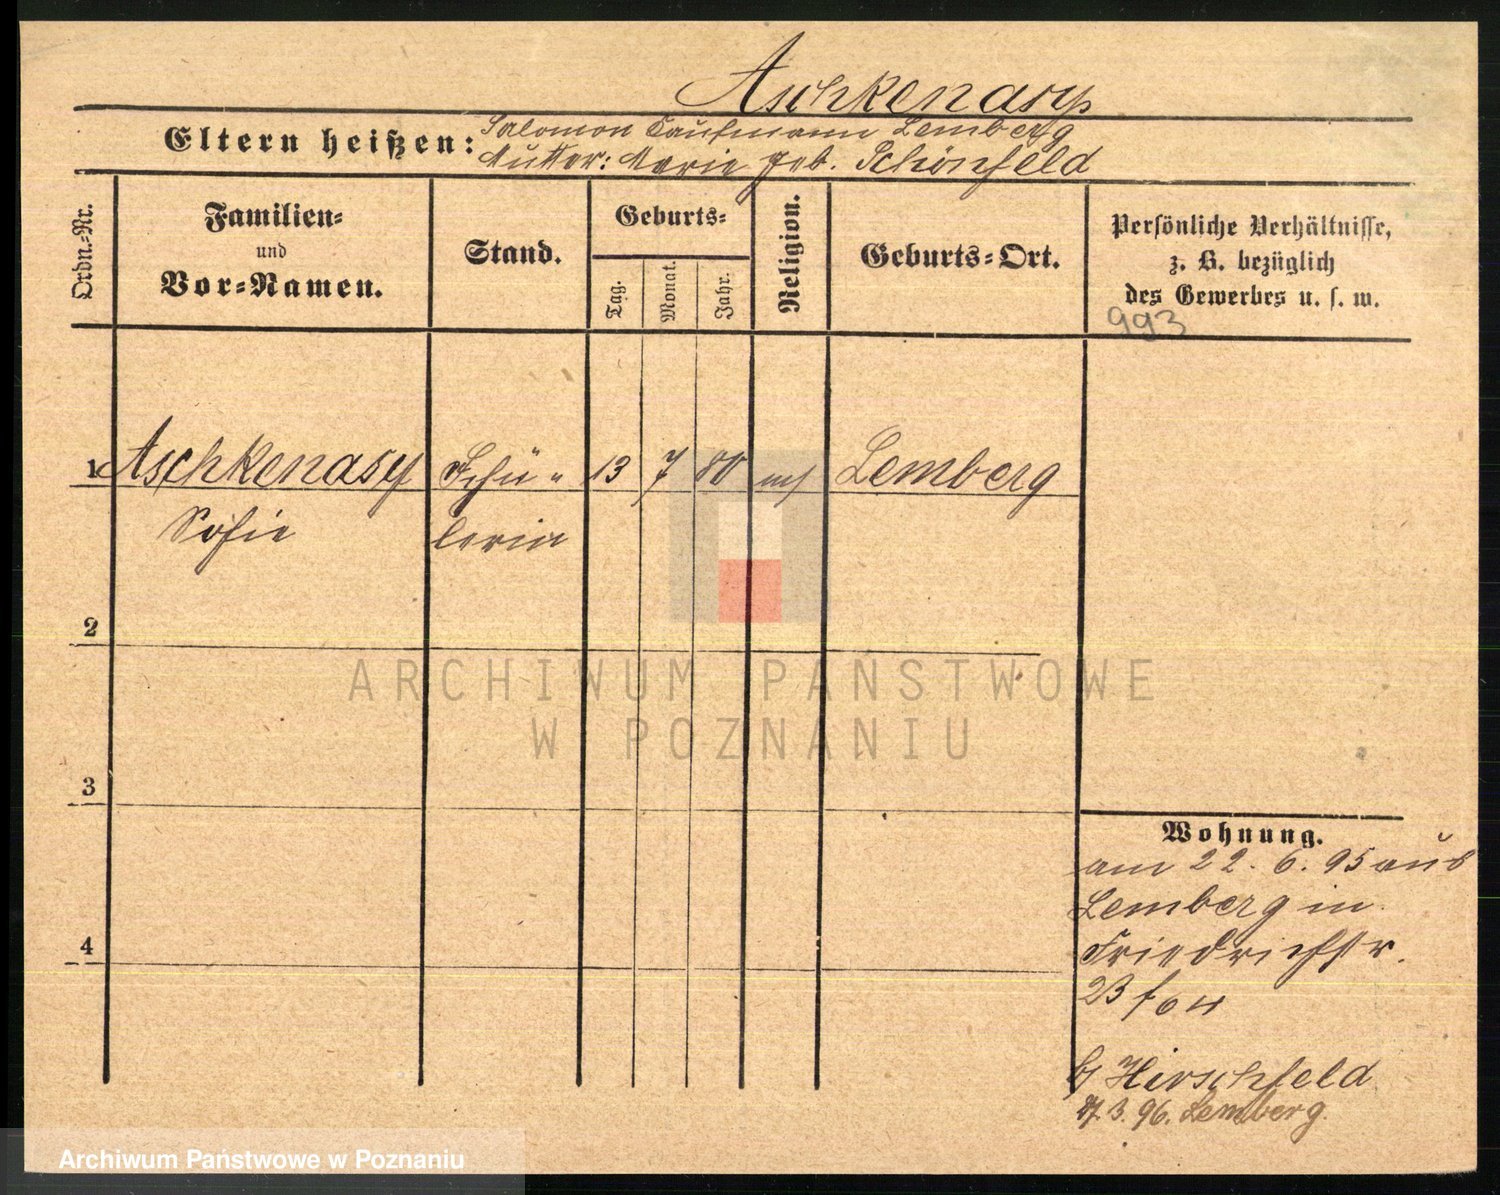 Aschkenasy
Eltern heißen: Salomon Kaufmann Lemberg
Mutter: Marie geb. Schönfeld
Ordn.-Nr.
Familien- und Vor-Namen.
Stand.
Geburts-
Tag.
Monat.
Jahr.
Religion.
Geburts-Ort.
Persönliche Verhältnisse,
z. B. bezüglich
des Gewerbes u. s. w.
993
1 Aschkenasy Schü- 13 7 80 Lemberg
Sofie lerin
2
3
4
ARCHIWUM PAŃSTWOWE
W POZNANIU
Wohnung.
am 22. 6. 95 aus
Lemberg in
Friedrichstr.
23
b/ Hirschfeld
3. 96. Lemberg.
Archiwum Państwowe w Poznaniu